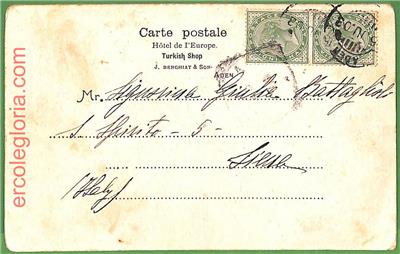 Carte postale
Hôtel de l'Europe.
Turkish Shop
J. BENGHIAT & SON-
ADEN
Mr. Signorina Giulia Battaglioli
S. Spirito - 5 -
(Italy)
ercolegloria.com